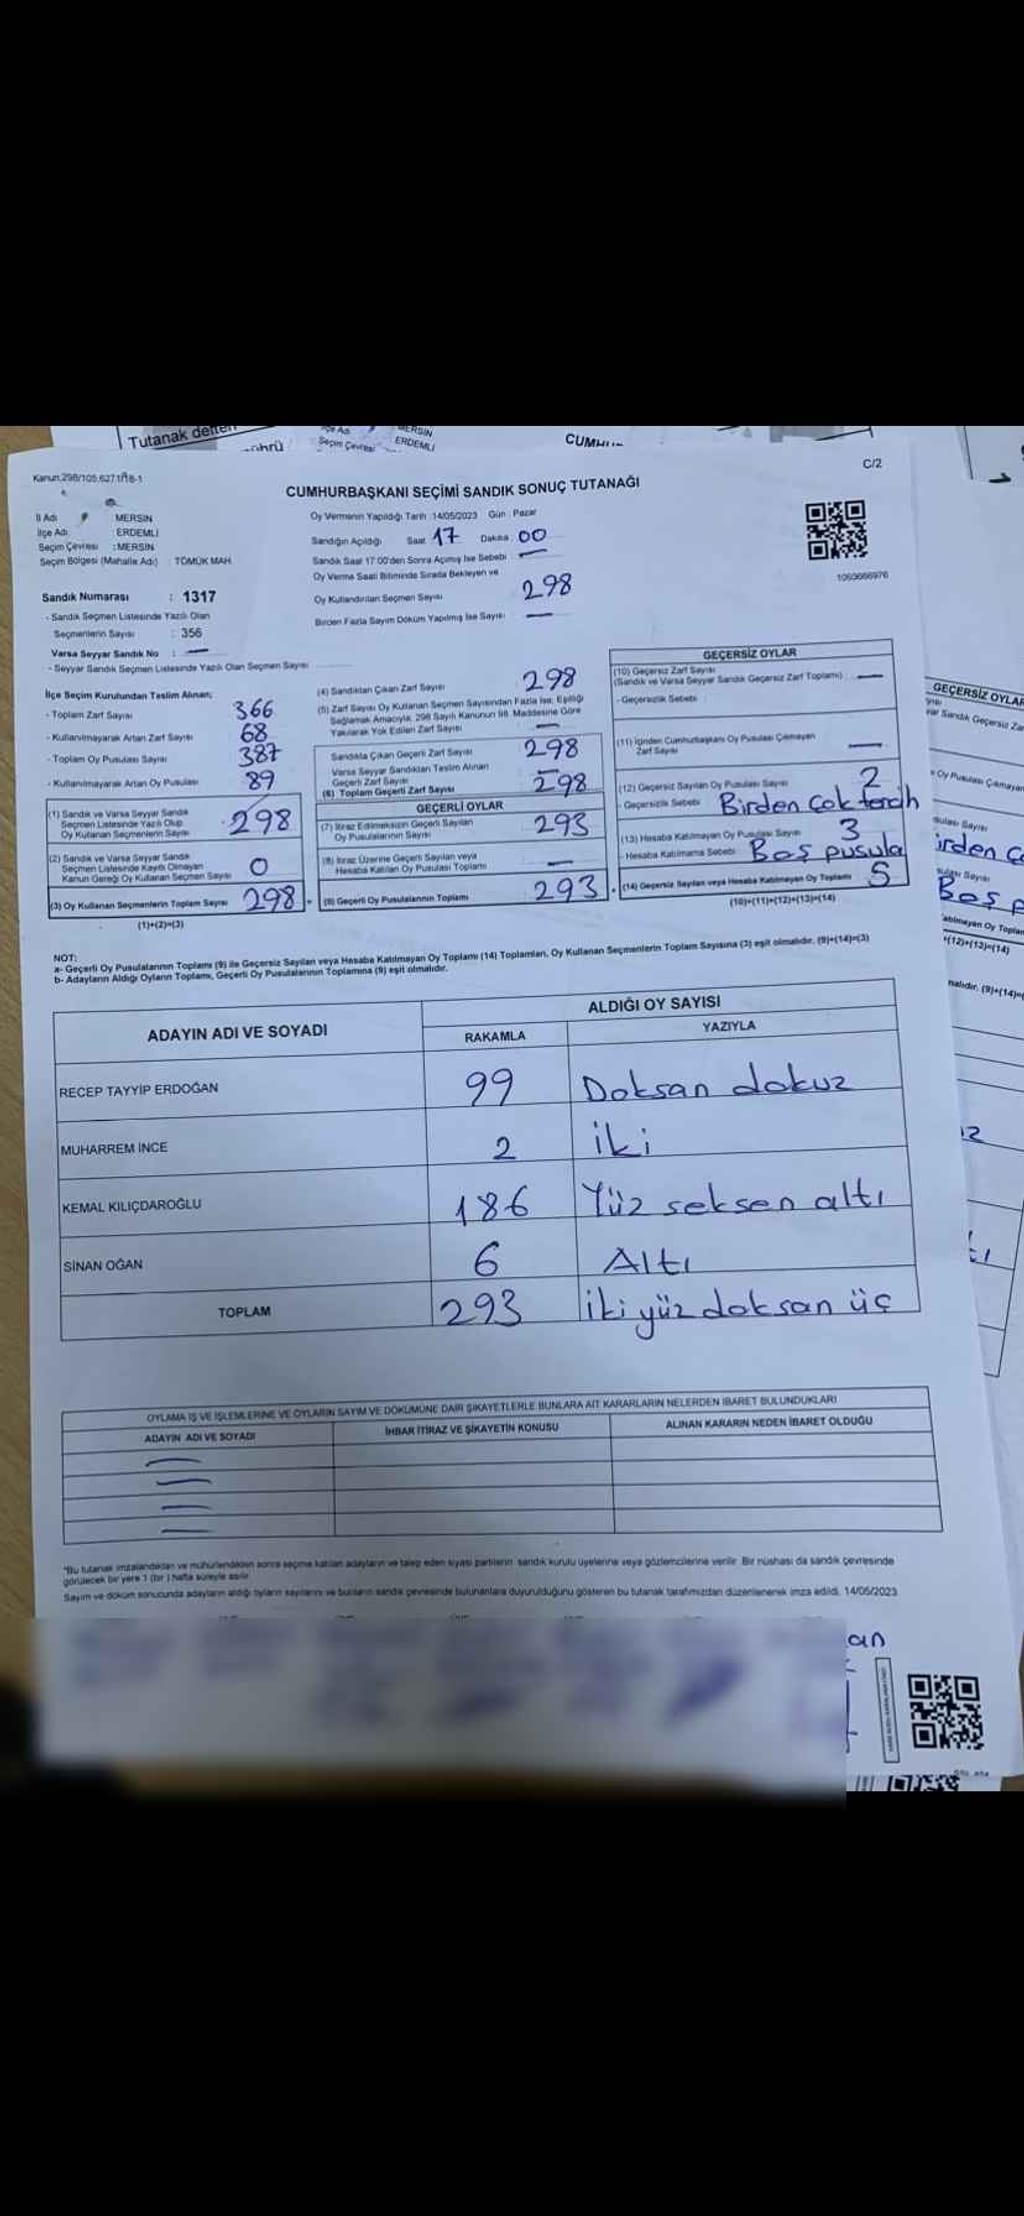 Tutanak defteri
MERSİN
Seçim Çevresi ERDEMLİ
Kanun:298/105,6271/18-1
C/2
CUMHURBAŞKANI SEÇİMİ SANDIK SONUÇ TUTANAĞI
İl Adı : MERSİN
İlçe Adı : ERDEMLİ
Seçim Çevresi : MERSİN
Seçim Bölgesi (Mahalle Adı) : TÖMÜK MAH.
Oy Vermenin Yapıldığı Tarih :14/05/2023 Gün : Pazar
Sandığın Açıldığı Saat 17 Dakika 00
Sandık Saat 17:00'den Sonra Açımış İse Sebebi —
Oy Verme Saati Bitiminde Sırada Bekleyen ve
Oy Kullandırılan Seçmen Sayısı 298
Birden Fazla Sayım Döküm Yapılmış İse Sayısı —
1093666976
Sandık Numarası : 1317
- Sandık Seçmen Listesinde Yazılı Olan
Seçmenlerin Sayısı : 356
Varsa Seyyar Sandık No : —
- Seyyar Sandık Seçmen Listesinde Yazılı Olan Seçmen Sayısı
İlçe Seçim Kurulundan Teslim Alınan;
- Toplam Zarf Sayısı 366
- Kullanılmayarak Artan Zarf Sayısı 68
- Toplam Oy Pusulası Sayısı 387
- Kullanılmayarak Artan Oy Pusulası 89
(1) Sandık ve Varsa Seyyar Sandık
Seçmen Listesinde Yazılı Olup
Oy Kullanan Seçmenlerin Sayısı 298
(2) Sandık ve Varsa Seyyar Sandık
Seçmen Listesinde Kayıtlı Olmayan
Kanun Gereği Oy Kullanan Seçmen Sayısı 0
(3) Oy Kullanan Seçmenlerin Toplam Sayısı 298
(1)+(2)=(3)
(4) Sandıktan Çıkan Zarf Sayısı 298
(5) Zarf Sayısı Oy Kullanan Seçmen Sayısından Fazla İse; Eşitliği
Sağlamak Amacıyla, 298 Sayılı Kanunun 98. Maddesine Göre
Yakılarak Yok Edilen Zarf Sayısı —
Sandıkta Çıkan Geçerli Zarf Sayısı 298
Varsa Seyyar Sandıktan Teslim Alınan
Geçerli Zarf Sayısı —
(6) Toplam Geçerli Zarf Sayısı 298
GEÇERLİ OYLAR
(7) İtiraz Edilmeksizin Geçerli Sayılan
Oy Pusulalarının Sayısı 293
(8) İtiraz Üzerine Geçerli Sayılan veya
Hesaba Katılan Oy Pusulası Toplamı —
(9) Geçerli Oy Pusulalarının Toplamı 293
GEÇERSİZ OYLAR
(10) Geçersiz Zarf Sayısı
(Sandık ve Varsa Seyyar Sandık Geçersiz Zarf Toplamı) —
- Geçersizlik Sebebi
(11) İçinden Cumhurbaşkanı Oy Pusulası Çıkmayan
Zarf Sayısı —
(12) Geçersiz Sayılan Oy Pusulası Sayısı 2
- Geçersizlik Sebebi Birden Çok tercih
(13) Hesaba Katılmayan Oy Pusulası Sayısı 3
- Hesaba Katılmama Sebebi Boş pusula
(14) Geçersiz Sayılan veya Hesaba Katılmayan Oy Toplamı 5
(10)+(11)+(12)+(13)=(14)
NOT:
a- Geçerli Oy Pusulalarının Toplamı (9) ile Geçersiz Sayılan veya Hesaba Katılmayan Oy Toplamı (14) Toplamları, Oy Kullanan Seçmenlerin Toplam Sayısına (3) eşit olmalıdır. (9)+(14)=(3)
b- Adayların Aldığı Oyların Toplamı, Geçerli Oy Pusulalarının Toplamına (9) eşit olmalıdır.
ADAYIN ADI VE SOYADI
ALDIĞI OY SAYISI
RAKAMLA YAZIYLA
RECEP TAYYİP ERDOĞAN 99 Doksan dokuz
MUHARREM İNCE 2 iki
KEMAL KILIÇDAROĞLU 186 Yüz seksen altı
SİNAN OĞAN 6 Altı
TOPLAM 293 iki yüz doksan üç
OYLAMA İŞ VE İŞLEMLERİNE VE OYLARIN SAYIM VE DÖKÜMÜNE DAİR ŞİKAYETLERLE BUNLARA AİT KARARLARIN NELERDEN İBARET BULUNDUKLARI
ADAYIN ADI VE SOYADI İHBAR İTİRAZ VE ŞİKAYETİN KONUSU ALINAN KARARIN NEDEN İBARET OLDUĞU
—
—
—
—
*Bu tutanak imzalandıktan ve mühürlendikten sonra seçime katılan adayların ve talep eden siyasi partilerin sandık kurulu üyelerine veya gözlemcilerine verilir. Bir nüshası da sandık çevresinde
görülecek bir yere 1 (bir) hafta süreyle asılır.
Sayım ve döküm sonucunda adayların aldığı oyların sayılarını ve bunların sandık çevresinde bulunanlara duyurulduğunu gösteren bu tutanak tarafımızdan düzenlenerek imza edildi. 14/05/2023
an
GEÇERSİZ OYLAR
irden Ço
Boş p
+(12)+(13)=(14)